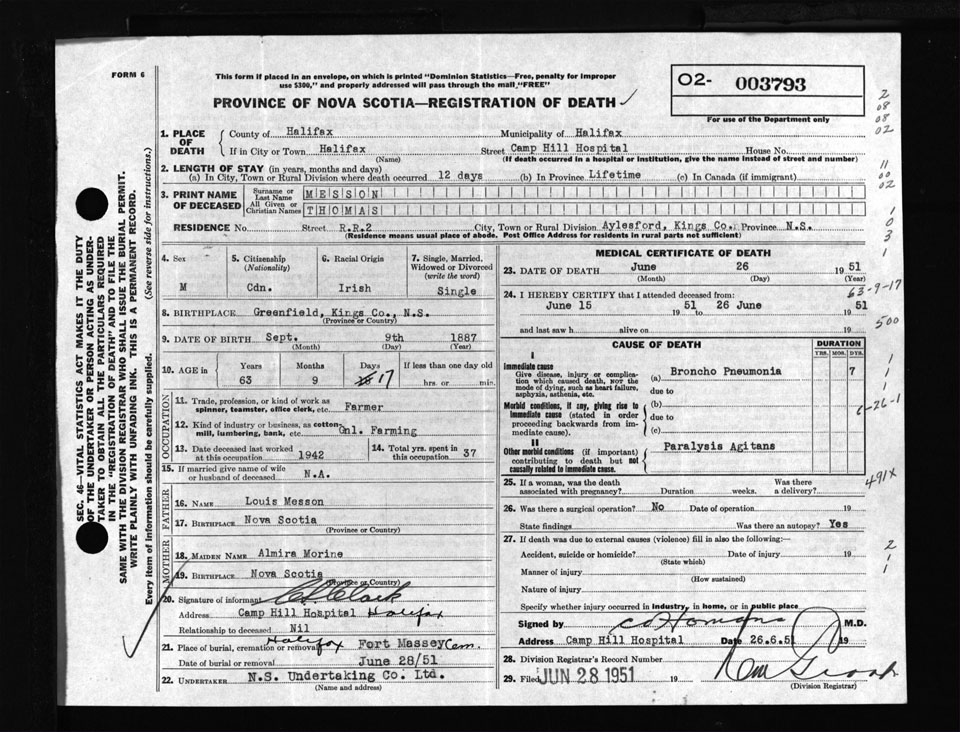 FORM 6
This form if placed in an envelope, on which is printed "Dominion Statistics—Free, penalty for improper
use $300," and properly addressed will pass through the mail "FREE"
PROVINCE OF NOVA SCOTIA—REGISTRATION OF DEATH ✓
O2- 003793
For use of the Department only
1. PLACE OF DEATH { County of Halifax Municipality of Halifax
If in City or Town Halifax Street Camp Hill Hospital House No.
(Name) (If death occurred in a hospital or institution, give the name instead of street and number)
2. LENGTH OF STAY (in years, months and days)
(a) In City, Town or Rural Division where death occurred 12 days (b) In Province Lifetime (c) In Canada (if immigrant)
3. PRINT NAME OF DECEASED
Surname or Last Name MESSON
All Given or Christian Names THOMAS
RESIDENCE No. Street R.R.2 City, Town or Rural Division Aylesford, Kings Co. Province N.S.
(Residence means usual place of abode. Post Office Address for residents in rural parts not sufficient)
4. Sex
M
5. Citizenship
(Nationality)
Cdn.
6. Racial Origin
Irish
7. Single, Married, Widowed or Divorced
(write the word)
Single
8. BIRTHPLACE Greenfield, Kings Co., N.S.
(Province or Country)
9. DATE OF BIRTH Sept. 9th 1887
(Month) (Day) (Year)
10. AGE in { Years Months Days If less than one day old
63 9 17 hrs. or min.
OCCUPATION
11. Trade, profession or kind of work as
spinner, teamster, office clerk, etc. Farmer
12. Kind of industry or business, as cotton-
mill, lumbering, bank, etc. Gnl. Farming
13. Date deceased last worked
at this occupation 1942
14. Total yrs. spent in
this occupation 37
15. If married give name of wife
or husband of deceased N.A.
FATHER
16. NAME Louis Messon
17. BIRTHPLACE Nova Scotia
(Province or Country)
MOTHER
18. MAIDEN NAME Almira Morine
19. BIRTHPLACE Nova Scotia
(Province or Country)
20. Signature of informant
Address Camp Hill Hospital Halifax
Relationship to deceased Nil
21. Place of burial, cremation or removal Halifax Fort Massey Cem.
Date of burial or removal June 28/51
22. UNDERTAKER N.S. Undertaking Co. Ltd.
(Name and address)
MEDICAL CERTIFICATE OF DEATH
23. DATE OF DEATH June 26 1951
(Month) (Day) (Year)
24. I HEREBY CERTIFY that I attended deceased from:
June 15 1951 to 26 June 1951
and last saw h alive on 19
CAUSE OF DEATH
DURATION
YRS. MOS. DYS.
I
Immediate cause
Give disease, injury or complica-
tion which caused death, NOT the
mode of dying, such as heart failure,
asphyxia, asthenia, etc.
(a) Broncho Pneumonia 7
due to
Morbid conditions, if any, giving rise to
immediate cause (stated in order
proceeding backwards from im-
mediate cause).
(b)
due to
(c)
II
Other morbid conditions (if important)
contributing to death but not
causally related to immediate cause.
Paralysis Agitans
25. If a woman, was the death
associated with pregnancy? Duration weeks. Was there
a delivery?
26. Was there a surgical operation? No Date of operation 19
State findings Was there an autopsy? Yes
27. If death was due to external causes (violence) fill in also the following:—
Accident, suicide or homicide? Date of injury 19
(State which)
Manner of injury
(How sustained)
Nature of injury
Specify whether injury occurred in industry, in home, or in public place
Signed by M.D.
Address Camp Hill Hospital Date 26.6.51 19
28. Division Registrar's Record Number
29. Filed JUN 28 1951 19
(Division Registrar)
SEC. 46—VITAL STATISTICS ACT MAKES IT THE DUTY
OF THE UNDERTAKER OR PERSON ACTING AS UNDER-
TAKER TO OBTAIN ALL THE PARTICULARS REQUIRED
IN THE "REGISTRATION OF DEATH" AND TO FILE THE
SAME WITH THE DIVISION REGISTRAR WHO SHALL ISSUE THE BURIAL PERMIT.
WRITE PLAINLY WITH UNFADING INK. THIS IS A PERMANENT RECORD.
Every item of information should be carefully supplied. (See reverse side for instructions.)
2
08
08
02
11
00
02
1
0
3
1
63-9-17
500
1
1
1
1
491X
2
1
1